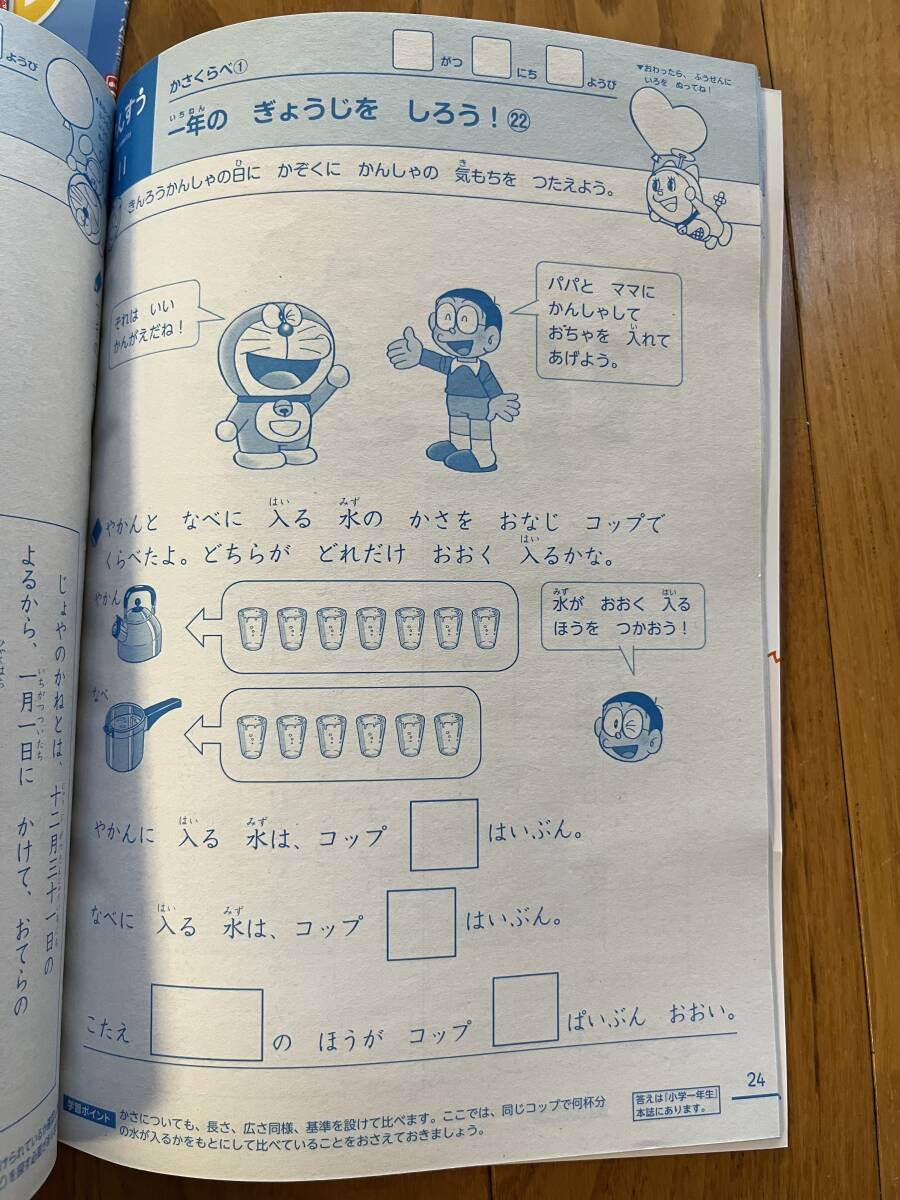 ようび
かさくらべ①
がつ にち ようび
▼おわったら、ふうせんに
いろを ぬってね！
一年の ぎょうじを しろう！㉒
いちねん
きんろうかんしゃの日に かぞくに かんしゃの 気もちを つたえよう。
ひ き
それは いい
かんがえだね！
パパと ママに
かんしゃして
おちゃを 入れて
い
あげよう。
はい みず
やかんと なべに 入る 水の かさを おなじ コップで
はい
くらべたよ。どちらが どれだけ おおく 入るかな。
やかん
みず はい
水が おおく 入る
ほうを つかおう！
なべ
はい みず
やかんに 入る 水は、コップ はいぶん。
はい みず
なべに 入る 水は、コップ はいぶん。
こたえ の ほうが コップ ぱいぶん おおい。
24
学習ポイント
かさについても、長さ、広さ同様、基準を設けて比べます。ここでは、同じコップで何杯分
の水が入るかをもとにして比べていることをおさえておきましょう。
答えは「小学一年生」
本誌にあります。
じょやのかねとは、十二月三十一日の
よるから、一月一日に かけて、おてらの
いちがつついたち